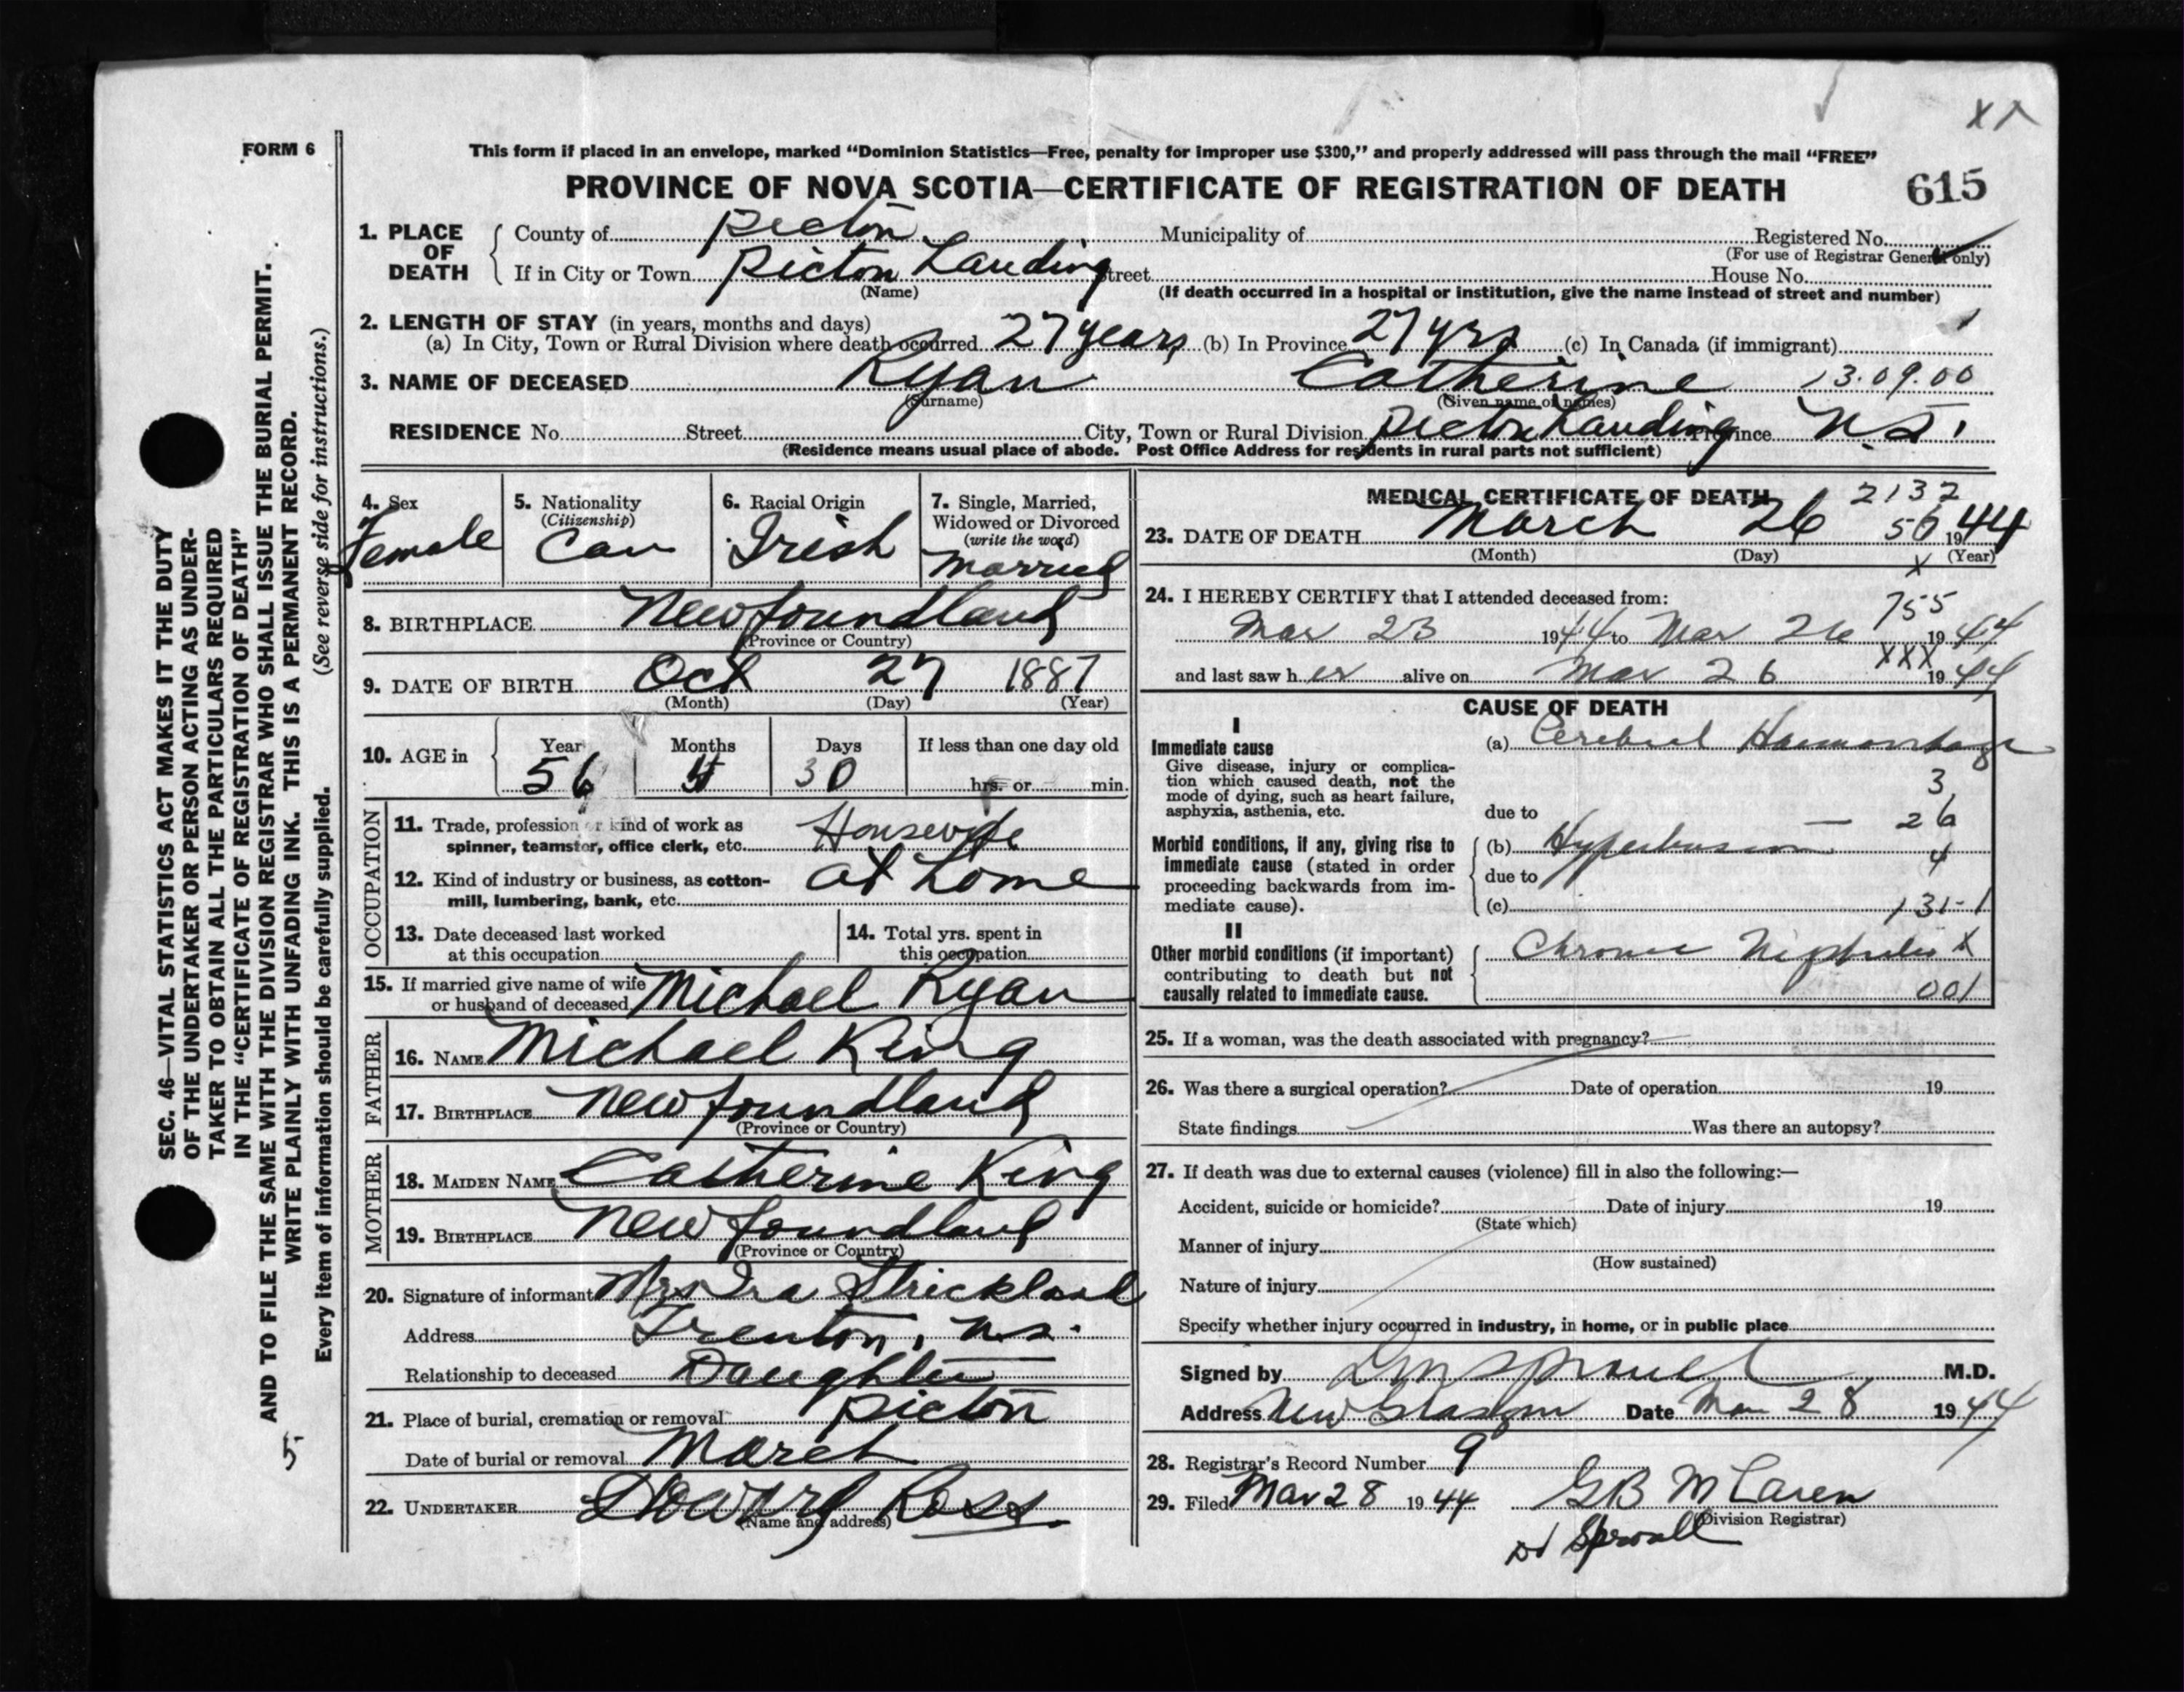 FORM 6
This form if placed in an envelope, marked “Dominion Statistics—Free, penalty for improper use $300,” and properly addressed will pass through the mail “FREE”
PROVINCE OF NOVA SCOTIA—CERTIFICATE OF REGISTRATION OF DEATH 615
1. PLACE OF DEATH
County of Pictou Municipality of Registered No.
(For use of Registrar General only)
If in City or Town Pictou Landing Street House No.
(Name) (If death occurred in a hospital or institution, give the name instead of street and number)
2. LENGTH OF STAY (in years, months and days)
(a) In City, Town or Rural Division where death occurred 27 years (b) In Province 27 yrs (c) In Canada (if immigrant)
3. NAME OF DECEASED Ryan Catherine 13.09.00
(Surname) (Given name or names)
RESIDENCE No. Street City, Town or Rural Division Pictou Landing Province N.S.
(Residence means usual place of abode. Post Office Address for residents in rural parts not sufficient)
4. Sex
Female
5. Nationality
(Citizenship)
Can
6. Racial Origin
Irish
7. Single, Married,
Widowed or Divorced
(write the word)
Married
8. BIRTHPLACE Newfoundland
(Province or Country)
9. DATE OF BIRTH Oct 27 1887
(Month) (Day) (Year)
10. AGE in
Years Months Days If less than one day old
56 4 30 hrs. or min.
OCCUPATION
11. Trade, profession or kind of work as
spinner, teamster, office clerk, etc. Housewife
12. Kind of industry or business, as cotton-
mill, lumbering, bank, etc. at home
13. Date deceased last worked
at this occupation
14. Total yrs. spent in
this occupation
15. If married give name of wife
or husband of deceased Michael Ryan
FATHER
16. NAME Michael King
17. BIRTHPLACE Newfoundland
(Province or Country)
MOTHER
18. MAIDEN NAME Catherine King
19. BIRTHPLACE Newfoundland
(Province or Country)
20. Signature of informant Mrs Ira Strickland
Address Trenton, N.S.
Relationship to deceased Daughter
21. Place of burial, cremation or removal Pictou
Date of burial or removal March
22. UNDERTAKER Howard Ross
(Name and address)
MEDICAL CERTIFICATE OF DEATH 2132
23. DATE OF DEATH March 26 56 1944
(Month) (Day) (Year)
x
24. I HEREBY CERTIFY that I attended deceased from: 755
Mar 23 1944 to Mar 26 1944
XXX
and last saw her alive on Mar 26 1944
CAUSE OF DEATH
I
Immediate cause
Give disease, injury or complica-
tion which caused death, not the
mode of dying, such as heart failure,
asphyxia, asthenia, etc.
(a) Cerebral Haemorrhage
3
due to 26
Morbid conditions, if any, giving rise to
immediate cause (stated in order
proceeding backwards from im-
mediate cause).
(b) Hypertension
due to 4
(c) 131-1
II
Other morbid conditions (if important)
contributing to death but not
causally related to immediate cause.
Chronic Nephritis x
001
25. If a woman, was the death associated with pregnancy?
26. Was there a surgical operation? Date of operation 19
State findings Was there an autopsy?
27. If death was due to external causes (violence) fill in also the following:—
Accident, suicide or homicide? Date of injury 19
(State which)
Manner of injury
(How sustained)
Nature of injury
Specify whether injury occurred in industry, in home, or in public place
Signed by Sproull M.D.
Address New Glasgow Date Mar 28 1944
28. Registrar's Record Number 9
29. Filed Mar 28 1944 GB McLaren
(Division Registrar)
Dr Sproull
SEC. 46—VITAL STATISTICS ACT MAKES IT THE DUTY
OF THE UNDERTAKER OR PERSON ACTING AS UNDER-
TAKER TO OBTAIN ALL THE PARTICULARS REQUIRED
IN THE “CERTIFICATE OF REGISTRATION OF DEATH”
AND TO FILE THE SAME WITH THE DIVISION REGISTRAR WHO SHALL ISSUE THE BURIAL PERMIT.
WRITE PLAINLY WITH UNFADING INK. THIS IS A PERMANENT RECORD.
Every item of information should be carefully supplied. (See reverse side for instructions.)
5